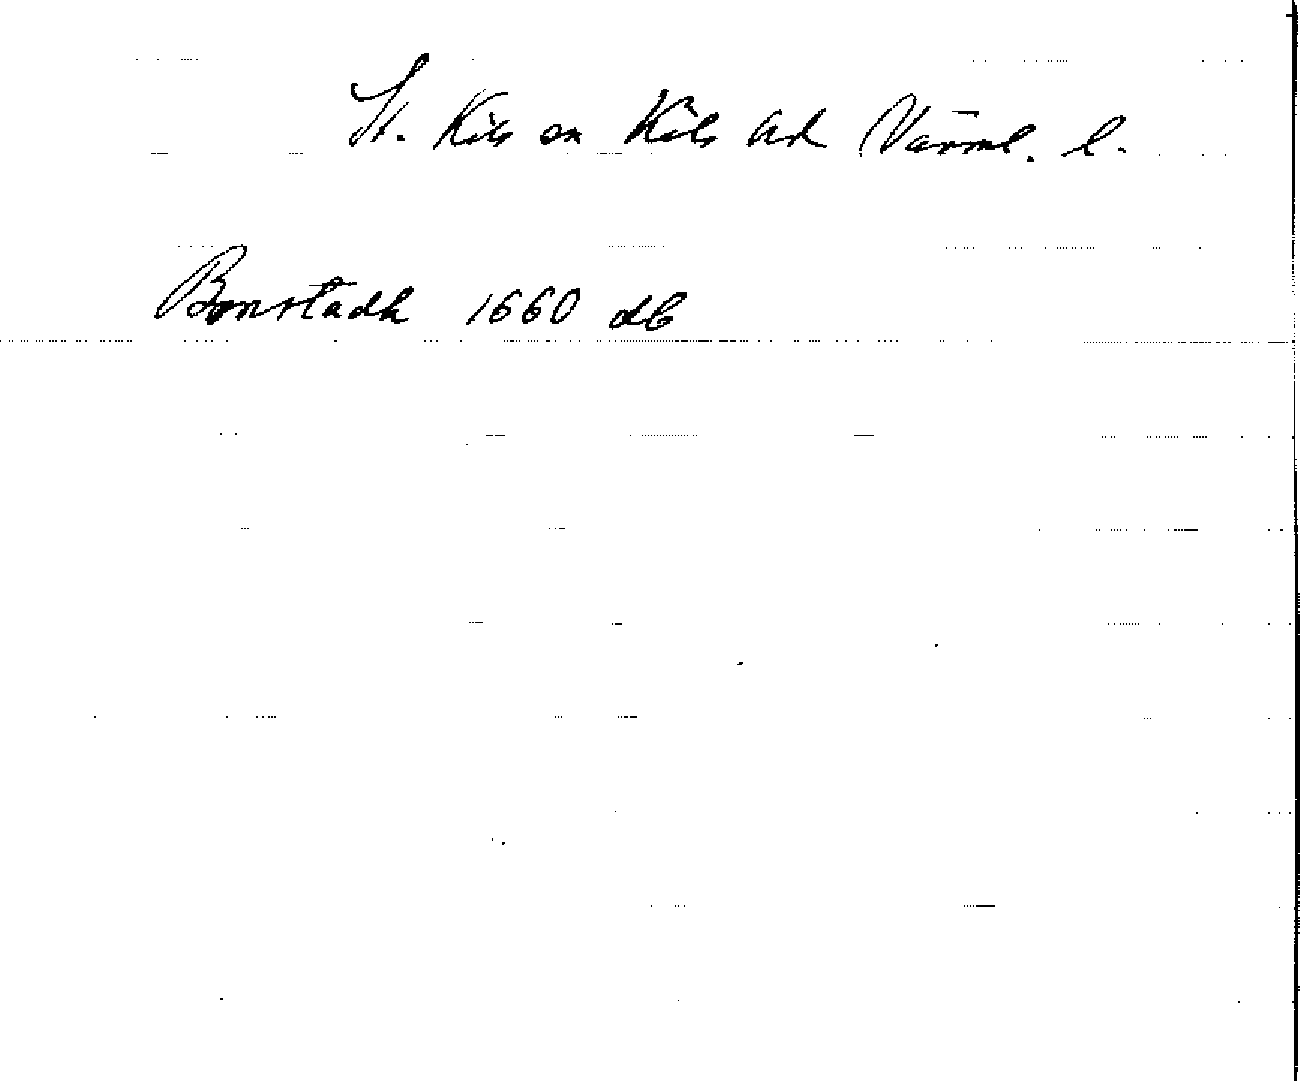 St. Kils sn Kils hd Värml. l.
Bonstadh 1660 db